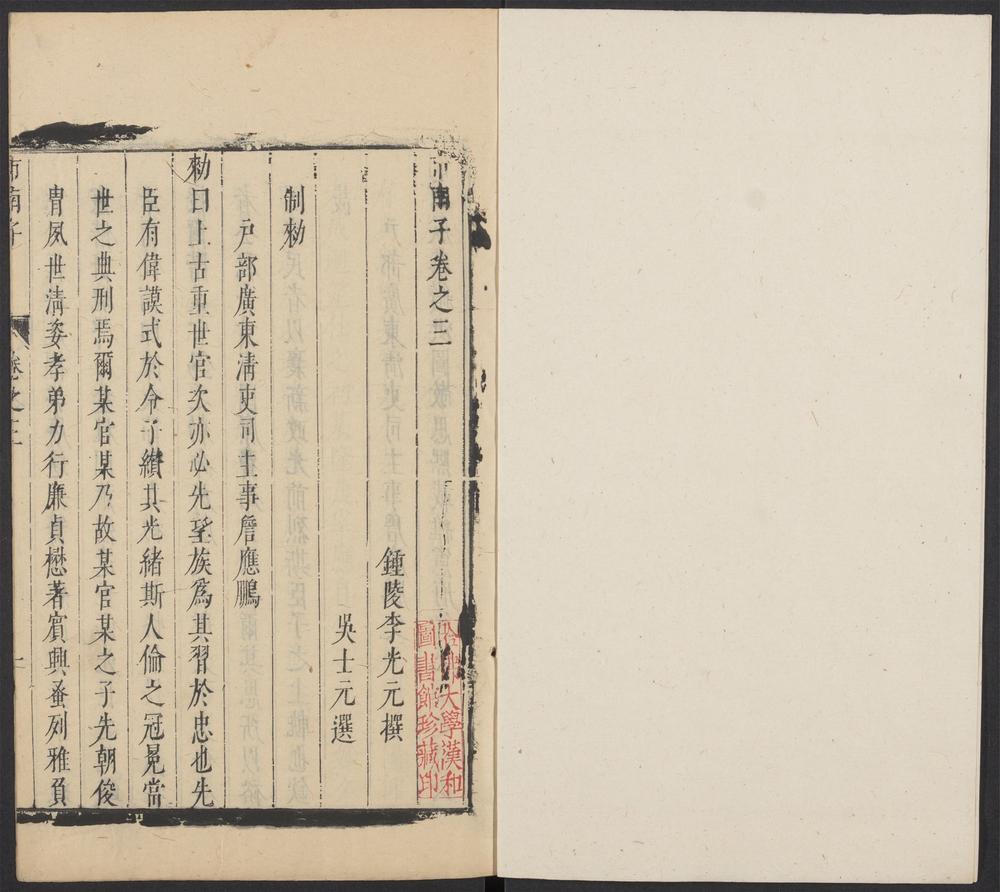 市南子卷之三
鍾陵李光元撰
吳士元選
制勑
戶部廣東清吏司主事詹應鵬
勑曰上古重世官次亦必先望族為其習於忠也先
臣有偉謨式於令子纘其光緒斯人倫之冠冕當
世之典刑焉爾某官某乃故某官某之子先朝俊
胄夙世清姿孝弟力行廉貞懋著賓興蚤列雅負
市南子 卷之三 一
哈佛大學漢和
圖書館珍藏印